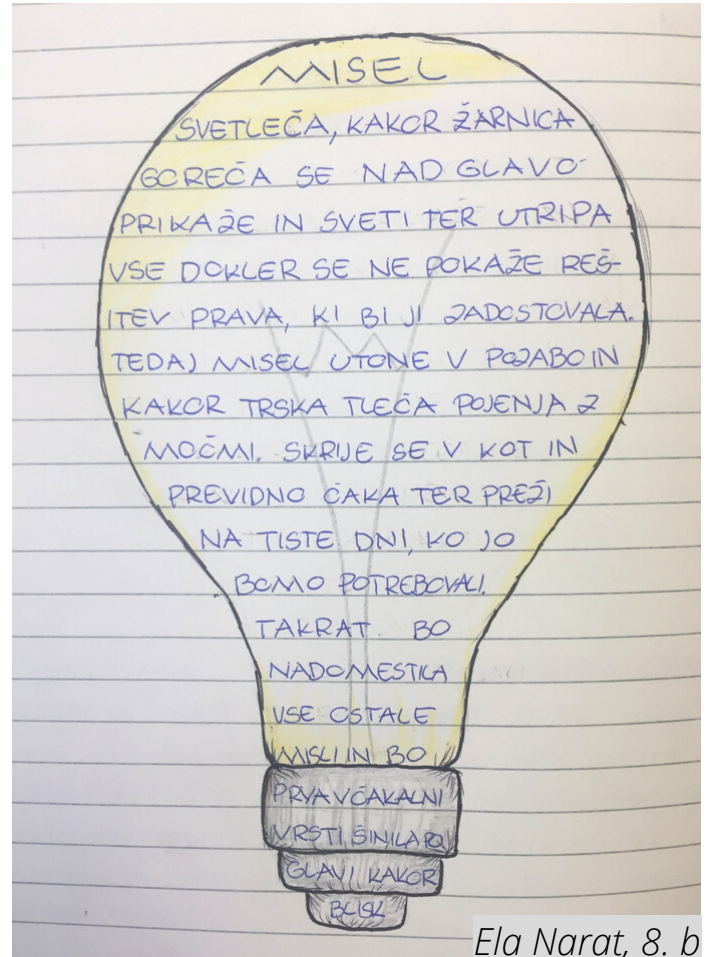 MISEL
SVETLEČA, KAKOR ŽARNICA
GOREČA SE NAD GLAVO
PRIKAŽE IN SVETI TER UTRIPA
VSE DOKLER SE NE POKAŽE REŠ-
ITEV PRAVA, KI BI JI ZADOSTOVALA.
TEDAJ MISEL UTONE V POZABO IN
KAKOR TRSKA TLEČA POJENJA Z
MOČMI. SKRIJE SE V KOT IN
PREVIDNO ČAKA TER PREŽI
NA TISTE DNI, KO JO
BOMO POTREBOVALI.
TAKRAT BO
NADOMESTILA
VSE OSTALE
MISLI IN BO
PRVA V ČAKALNI
VRSTI ŠINILA PO
GLAVI KAKOR
BLISK
Ela Narat, 8. b